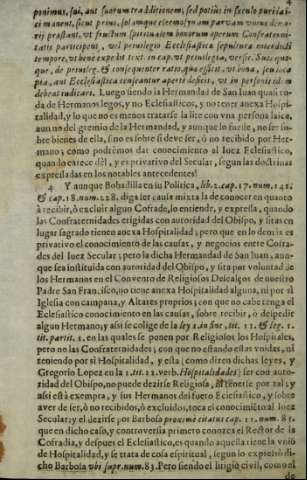 ponimus, sui, aut suorum traditionem, sed potiùs in sæculo puri lai-
ci manent, sicut prius, sol amque eleemosynam parvam unius dena-
rij præstant, vt fructum spiritualium bonorum operum Confraterni-
tatis participent, vel privilegio Ecclesiastica sepultura interdicti
tempore, vt bene expedit text. in cap. vt privilegia, verse.
que, de privileg. & consequenter ratio, quæ efficit, vt bona,
pia, aut Ecclesiastica censeantur aperte deficit, vt in persona
debeat iudicari. Luego siendo la Hermandad de San Iuan
da de Hermanos legos, y no Eclesiasticos, y no tener anexa Hospi-
talidad, y lo que no es menos tratarse la lite con vna persona laica,
aun no del gremio de la Hermandad, y aunque lo fuesse, no ser so-
bre bienes de ella, sino es sobre si deve ser, ò no recibido por Her-
mano; cómo podrèmos dar conocimiento al Iuez Eclesiastico,
quando carece dèl, y es privativo del Secular, segun las doctrinas
expressadas en los notables antecedentes?
4 Y aunque Bobadilla en su Politica, lib. 2. cap. 17. num. 141.
& cap. 18. num. 228. diga ser causa mixta la de conocer en quanto
à recibir, ò excluir algun Cofrade, lo entiende, y expressa, quando
las Confraternidades erigidas con autoridad del Obispo, y sitas en
lugar sagrado tienen anexa Hospitalidad; pero que en lo demàs es
privativo el conocimiento de las causas, y negocios entre Cofra-
des del Iuez Secular; pero la dicha Hermandad de San Iuan, aun-
que sea instituida con autoridad del Obispo, y sita por voluntad de
los Hermanos en el Convento de Religiosos Descalços de nuestro
Padre San Francisco, no tiene anexa Hospitalidad alguna, ni por sì
Iglesia con campana, y Altares proprios; con que no cabe tenga el
Eclesiastico conocimiento en las causas, sobre recibir, ò despedir
algun Hermano; y assi se colige de la ley 1. in fine, tit. 11. & leg. 1.
tit. partit. 1. en las quales se ponen por Religiosos los Hospitales,
pero no las Confraternidades; con que no estando estas vnidas, ni
teniendo por sì Hospitalidad, y ella (como dizen dichas leyes, y
Gregorio Lopez en la 1. tit. 12. verb. Hospitalidades) ser con auto-
ridad del Obispo, no puede dezirse Religiosa, ni tenerse por tal; y
assi està exempta, y sus Hermanos del fuero Eclesiastico, y sobre
aver de ser, ò no recibidos, ò excluidos, toca el conocimiẽto al Iuez
Secular; y el dezirse por Barbosa proxime citatus cap. 11. num. 83.
que en dicho caso, y controversia primero conozca el Rector de la
Cofradia, y despues el Eclesiastico, es quando aquella tiene la vniõ
de Hospitalidad, y se trata de cosa espiritual, segun lo expressò di-
cho Barbosa vbi supr. num. 83. Pero siendo el litigio civil, como el
de